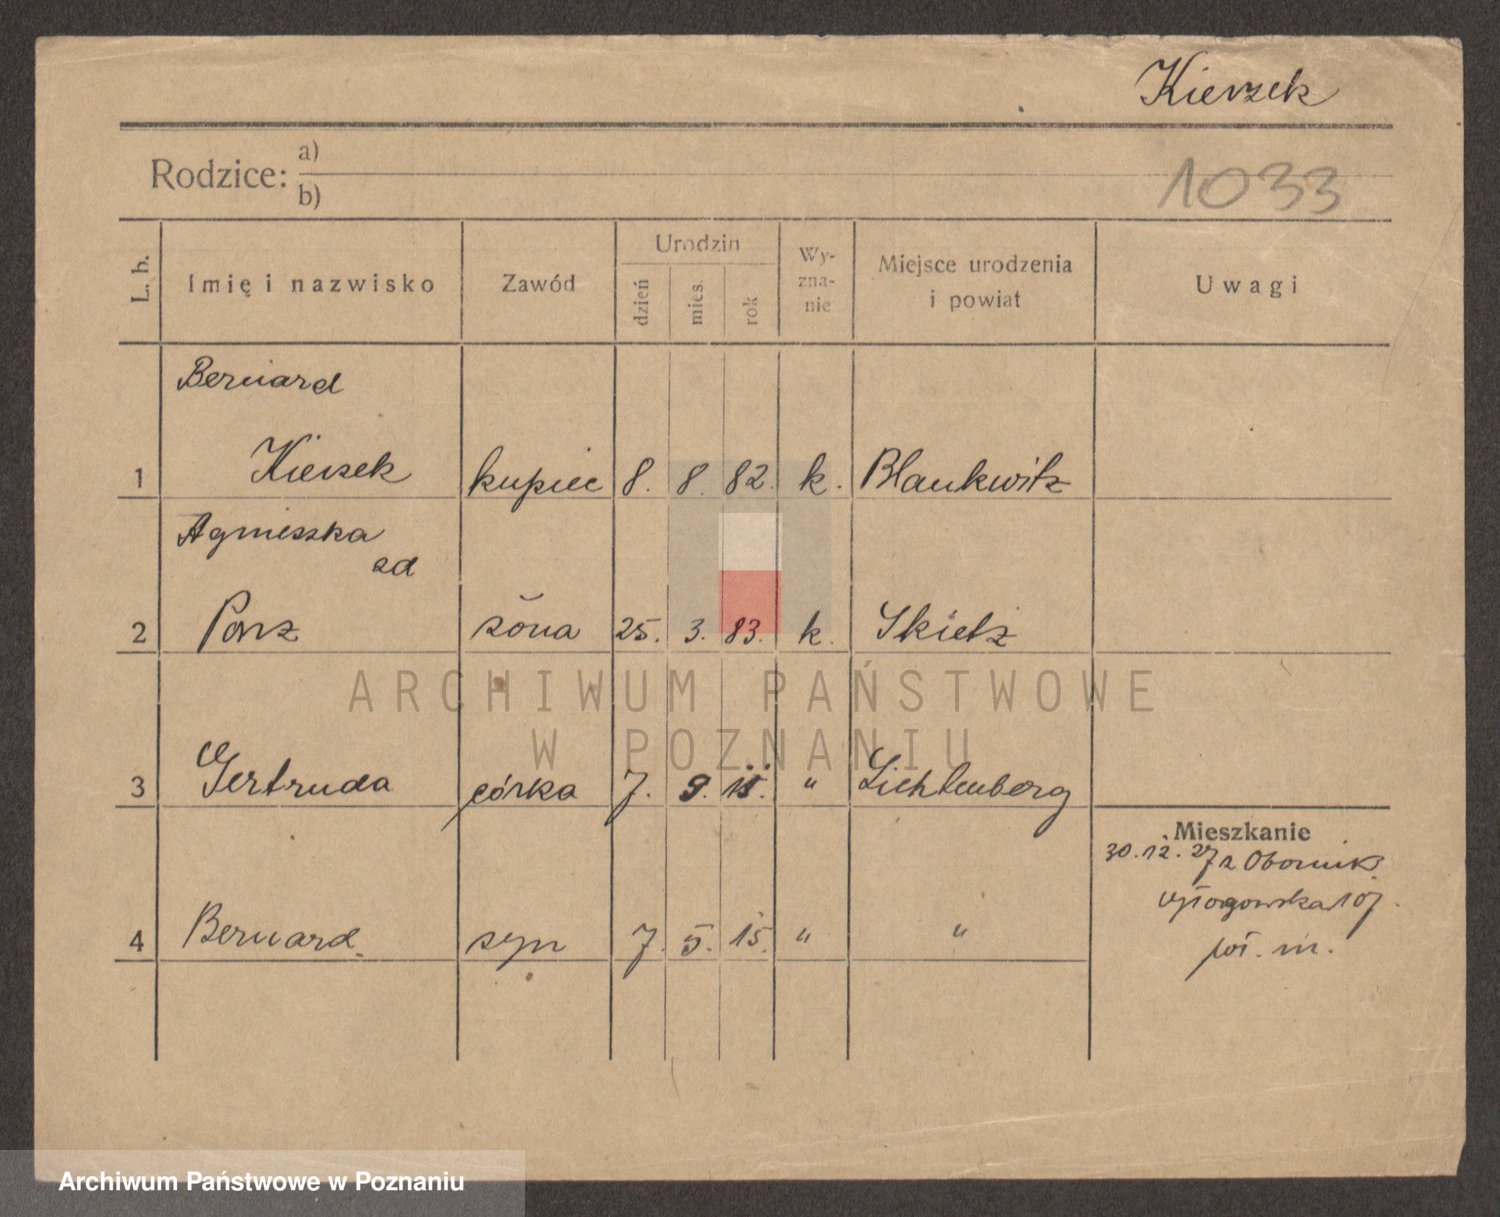 Kierzek
Rodzice: a)
b)
1033
L. b.
Imię i nazwisko
Zawód
Urodzin
dzień
mies.
rok
Wy-
zna-
nie
Miejsce urodzenia
i powiat
Uwagi
Bernard
1 Kierzek kupiec 8. 8. 82. k. Blankwitz
Agnieszka
zd
2 żona 25. 3. 83. k. Skietz
ARCHIWUM PAŃSTWOWE
W POZNANIU
3 Gertruda córka 7. 9. 11. " Lichtenberg
Mieszkanie
30.12.27 z Obornik
107.
4 Bernard syn 7. 5. 15. " "
m.
Archiwum Państwowe w Poznaniu